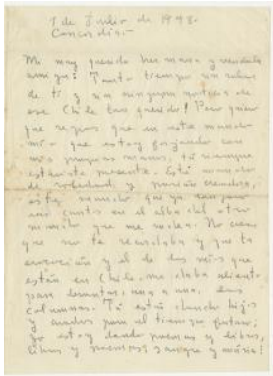 1 de Junio de 1948.
Concordia.
Mi muy querida hermana y
amiga: Tanto tiempo sin saber
de ti y sin ninguna noticia de
ese Chile tan querido! Pero quiero
que sepas que en este mundo
mío que estoy forjando con
mis propias manos, tú siempre
estuviste presente. Este mundo
de soledad y pasión creadora,
este mundo que ya
en el alba del otro
mundo que me rodea. No creas
que no te recordaba y que tu
evocación y el de los míos que
están en Chile, me daba aliento
para levantar, una a una, sus
columnas. Tú estás dando hijos
y para el tiempo futuro;
yo estoy dando poemas y libros,
libros y poemas,